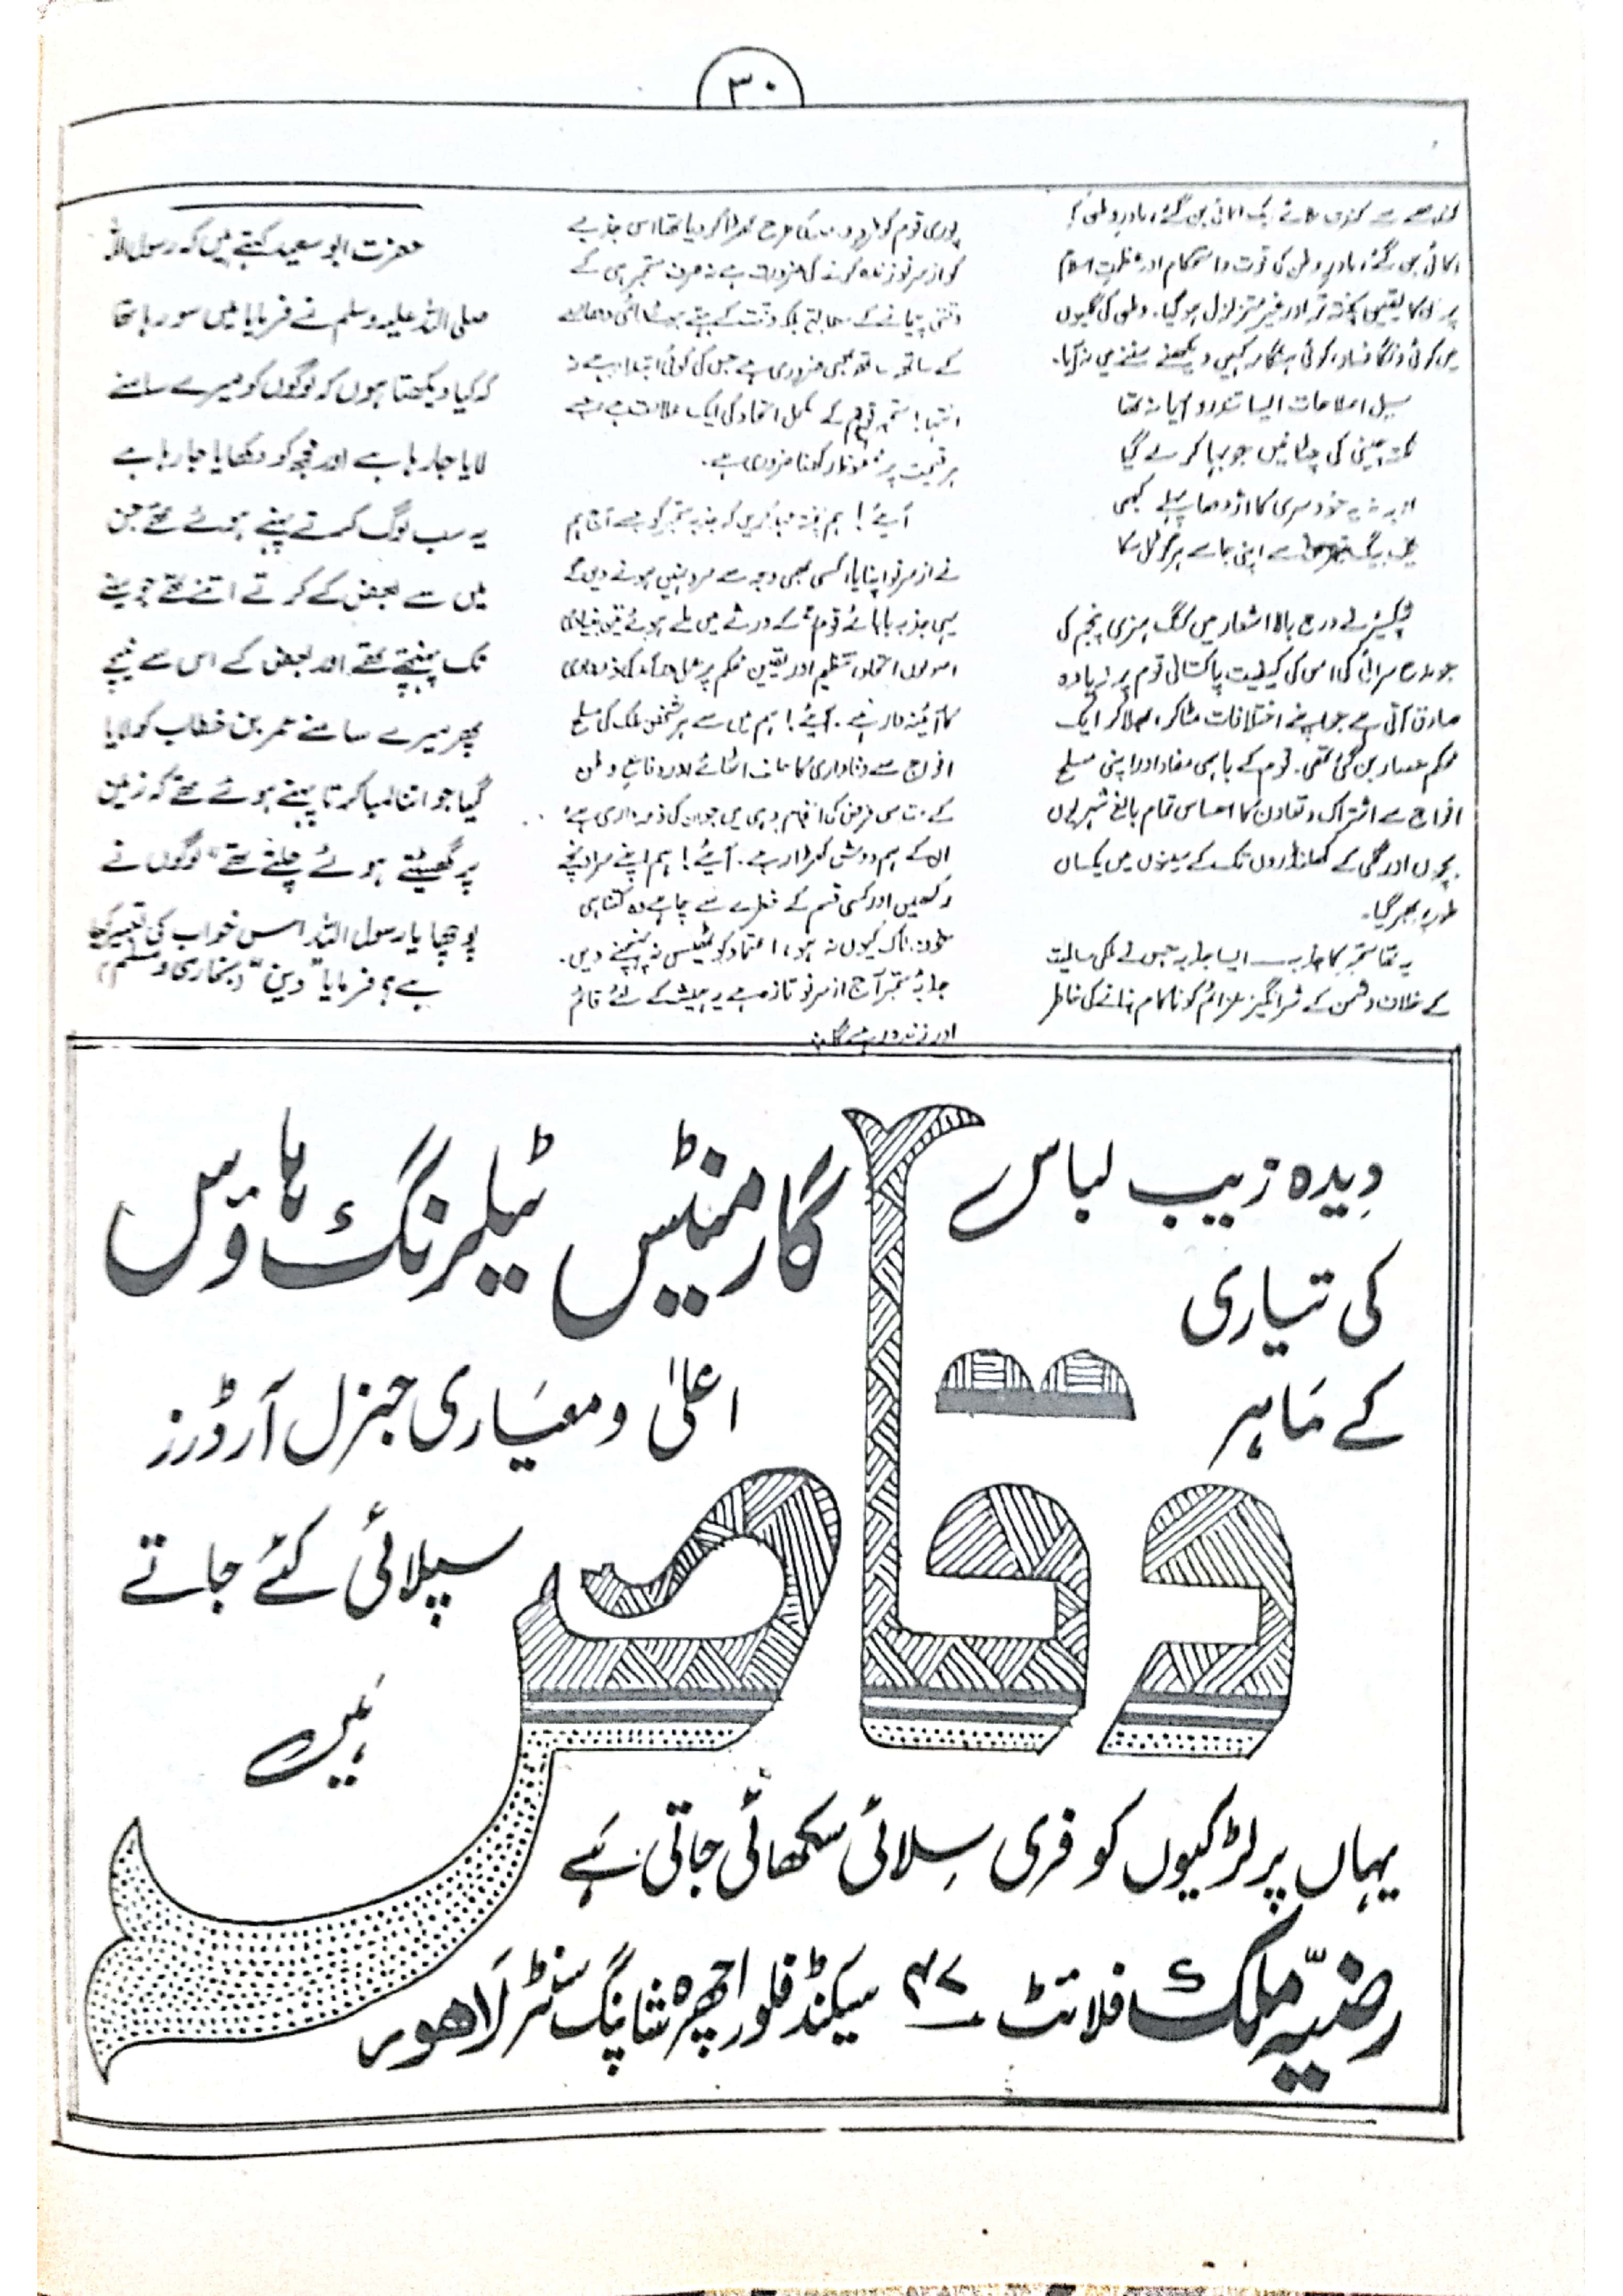 ۳۰
اکائی بن گئے، مادرِ وطن کی قوت و استحکام اور عظمتِ اسلام
پر ان کا یقین پختہ تر اور غیر متزلزل ہو گیا۔ وطن کی گلیوں
میں کوئی دنگا فساد، کوئی ہنگامہ کہیں دیکھنے سننے میں نہ آیا۔
سیل اصلاحات ایسا تند رو آیا نہ تھا
نکتہ چینی کی چٹانیں جو بہا کر لے گیا
خود سری کا اژدھا پہلے کبھی
سے اپنی جا سے ہرگز ہل سکا
شیکسپیئر نے درج بالا اشعار میں کنگ ہنری پنجم کی
جو مدح سرائی کی اس کی کیفیت پاکستانی قوم پر زیادہ
صادق آتی ہے جو اپنے اختلافات مٹا کر، بھلا کر ایک
محکم حصار بن گئی تھی۔ قوم کے باہمی مفاد اور اپنی مسلح
افواج سے اشتراک و تعاون کا احساس تمام بالغ شہریوں
بچوں اور گلی کے کھلنڈروں تک کے سینوں میں یکساں
طور پر بھر گیا۔
یہ تھا ستمبر کا جذبہ ۔ ایسا جذبہ جس نے ملکی سالمیت
کے خلاف دشمن کے شر انگیز عزائم کو ناکام بنانے کی خاطر
پوری قوم کو کی طرح کھڑا کر دیا تھا اسی جذبے
کو از سرِ نو زندہ کرنے کی ضرورت ہے نہ صرف ستمبر ہی کے
کے ساتھ ساتھ بھی ضروری ہے جس کی کوئی ابتدا ہے نہ
انتہا! ستمبر قوم کے مکمل اتحاد کی ایک علامت ہے جسے
ہر قیمت پر محفوظ رکھنا ضروری ہے۔
آیئے! ہم پختہ عہد کریں کہ جذبہ ستمبر کو جسے آج ہم
نے از سرِ نو اپنایا، کسی بھی وجہ سے سرد نہیں ہونے دیں گے
یہی جذبہ بابائے قوم کے ورثے میں ملے ہوئے تین بنیادی
اصولوں اتحاد، تنظیم اور یقین محکم پر عمل
کا آئینہ دار ہے۔ آیئے! ہم میں سے ہر شخص ملک کی مسلح
افواج سے وفاداری کا حلف اٹھائے اور دفاعِ وطن
کے مقدس فرض کی انجام دہی میں جو ان کی ذمہ داری ہے
ان کے ہم دوش کھڑا رہے۔ آیئے! ہم اپنے سر اونچے
رکھیں اور کسی قسم کے خطرے سے چاہے وہ کتنا ہی
کیوں نہ ہو، اعتماد کو ٹھیس نہ پہنچنے دیں۔
جذبۂ ستمبر آج از سرِ نو تازہ ہے یہ ہمیشہ کے لئے قائم
اور زندہ رہے گا
حضرت ابو سعید کہتے ہیں کہ رسول اللہ
صلی اللہ علیہ وسلم نے فرمایا میں سو رہا تھا
کہ کیا دیکھتا ہوں کہ لوگوں کو میرے سامنے
لایا جا رہا ہے اور مجھ کو دکھایا جا رہا ہے
یہ سب لوگ کرتے پہنے ہوئے تھے جن
میں سے بعض کے کرتے اتنے تھے جو سینے
تک پہنچتے تھے اور بعض کے اس سے نیچے
پھر میرے سامنے عمر بن خطاب کو لایا
گیا جو اتنا لمبا کرتا پہنے ہوئے تھے کہ زمین
پر گھسیٹتے ہوئے چلتے تھے" لوگوں نے
پوچھا یا رسول اللہ اس خواب کی تعبیر کیا
ہے؟ فرمایا "دین" (بخاری و مسلم)
دیدہ زیب لباس
کی تیاری
کے ماہر
وقاص
گارمنٹس ٹیلرنگ ہاؤس
اعلیٰ و معیاری جنرل آرڈرز
سپلائی کئے جاتے
ہیں
یہاں پر لڑکیوں کو فری سلائی سکھائی جاتی ہے
رضیہ ملک فلائٹ ۴۷ سیکنڈ فلور اچھرہ شاپنگ سنٹر لاھور